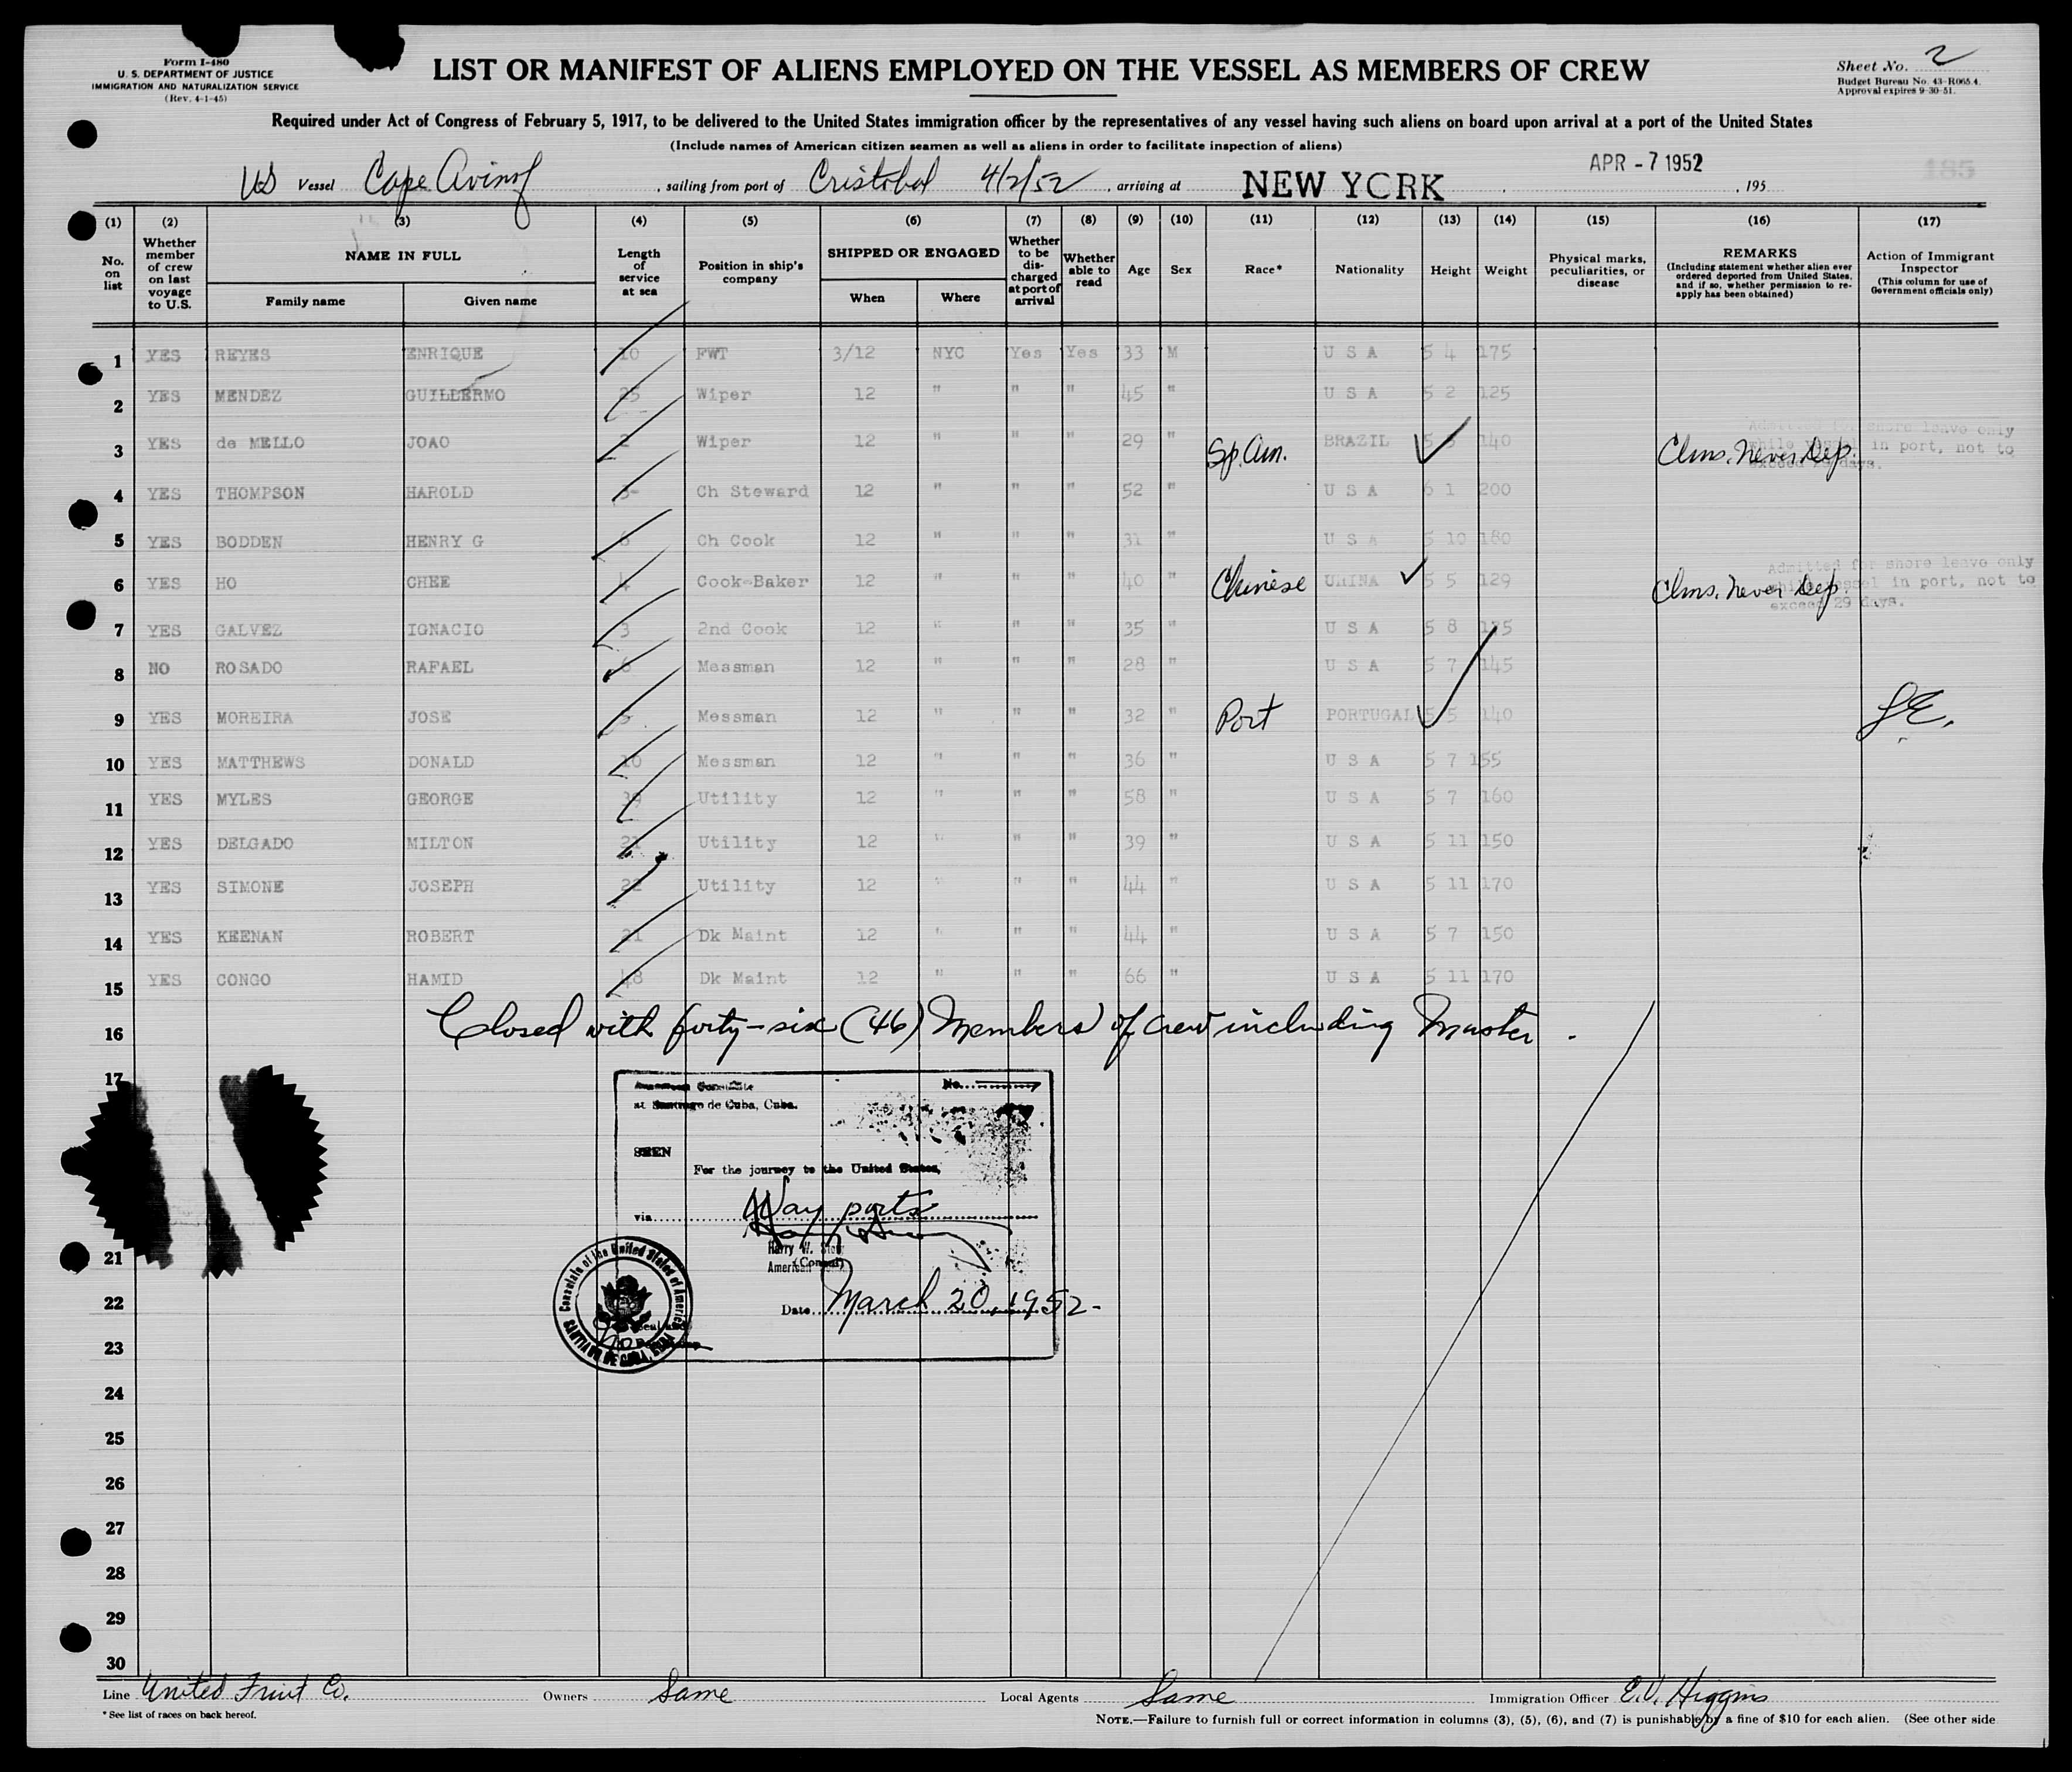 Form I-480
U. S. DEPARTMENT OF JUSTICE
IMMIGRATION AND NATURALIZATION SERVICE
(Rev. 4-1-45)
LIST OR MANIFEST OF ALIENS EMPLOYED ON THE VESSEL AS MEMBERS OF CREW
Sheet No. 2
Budget Bureau No. 43-R065.4.
Approval expires 9-30-51.
Required under Act of Congress of February 5, 1917, to be delivered to the United States immigration officer by the representatives of any vessel having such aliens on board upon arrival at a port of the United States
(Include names of American citizen seamen as well as aliens in order to facilitate inspection of aliens)
US Vessel Cape Avinof, sailing from port of Cristobal 4/2/52, arriving at NEW YORK, APR - 7 1952, 195
185
(1) (2) (3) (4) (5) (6) (7) (8) (9) (10) (11) (12) (13) (14) (15) (16) (17)
No. on list
Whether member of crew on last voyage to U.S.
NAME IN FULL
Family name Given name
Length of service at sea
Position in ship's company
SHIPPED OR ENGAGED
When Where
Whether to be discharged at port of arrival
Whether able to read
Age
Sex
Race*
Nationality
Height
Weight
Physical marks, peculiarities, or disease
REMARKS
(Including statement whether alien ever ordered deported from United States, and if so, whether permission to re-apply has been obtained)
Action of Immigrant Inspector
(This column for use of Government officials only)
1 YES REYES ENRIQUE 10 FWT 3/12 NYC Yes Yes 33 M U S A 5 4 175
2 YES MENDEZ GUILLERMO 25 Wiper 12 " " " 45 " U S A 5 2 125
3 YES de MELLO JOAO 2 Wiper 12 " " " 29 " Sp. Am. BRAZIL 5 140 Clms. Never Dep.
Admitted for shore leave only
while vessel in port, not to
exceed 29 days.
4 YES THOMPSON HAROLD 3- Ch Steward 12 " " " 52 " U S A 6 1 200
5 YES BODDEN HENRY G Ch Cook 12 " " " 31 " U S A 5 10 180
6 YES HO CHEE 4 Cook-Baker 12 " " " 40 " Chinese CHINA 5 5 129 Clms. Never Dep.
Admitted for shore leave only
while vessel in port, not to
exceed 29 days.
7 YES GALVEZ IGNACIO 3 2nd Cook 12 " " " 35 " U S A 5 8 175
8 NO ROSADO RAFAEL 6 Messman 12 " " " 28 " U S A 5 7 145
9 YES MOREIRA JOSE 5 Messman 12 " " " 32 " Port PORTUGAL 5 5 140
10 YES MATTHEWS DONALD 10 Messman 12 " " " 36 " U S A 5 7 155
11 YES MYLES GEORGE 39 Utility 12 " " " 58 " U S A 5 7 160
12 YES DELGADO MILTON 21 Utility 12 " " " 39 " U S A 5 11 150
13 YES SIMONE JOSEPH 22 Utility 12 " " " 44 " U S A 5 11 170
14 YES KEENAN ROBERT 21 Dk Maint 12 " " " 44 " U S A 5 7 150
15 YES CONGO HAMID 48 Dk Maint 12 " " " 66 " U S A 5 11 170
16 Closed with forty-six (46) Members of crew including Master.
17
American Consulate No.
at Santiago de Cuba, Cuba.
SEEN
For the journey to the United States,
via Way ports
Harry W. Story
American (Consul)
Date March 20, 1952-
Consulate of the United States of America
SANTIAGO DE CUBA, CUBA
21
22
23
24
25
26
27
28
29
30
Line United Fruit Co. Owners Same Local Agents Same Immigration Officer E.V. Higgins
* See list of races on back hereof.
NOTE.—Failure to furnish full or correct information in columns (3), (5), (6), and (7) is punishable by a fine of $10 for each alien. (See other side